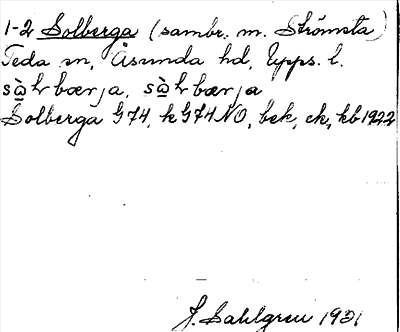 1-2 Solberga (sambr. m. Strömsta)
Teda sn, Åsunda hd, Upps. l.
Solberga G74, kG74NO, bek, ck, kb 1922
J. Sahlgren 1931